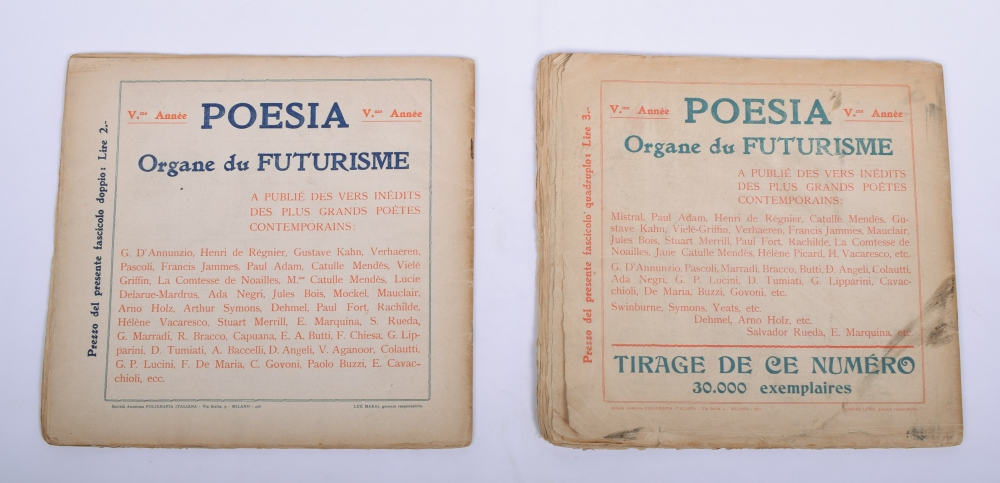 Prezzo del presente fascicolo doppio: Lire 2.-
V.me Année POESIA V.me Année
Organe du FUTURISME
A PUBLIÉ DES VERS INÉDITS
DES PLUS GRANDS POÈTES
CONTEMPORAINS:
G. D'Annunzio, Henri de Régnier, Gustave Kahn, Verhaeren,
Pascoli, Francis Jammes, Paul Adam, Catulle Mendès, Vielé
Griffin, La Comtesse de Noailles, M.me Catulle Mendès, Lucie
Delarue-Mardrus, Ada Negri, Jules Bois, Mockel, Mauclair,
Arno Holz, Arthur Symons, Dehmel, Paul Fort, Rachilde,
Hélène Vacaresco, Stuart Merrill, E. Marquina, S. Rueda,
G. Marradi, R. Bracco, Capuana, E. A. Butti, F. Chiesa, G. Lip-
parini, D. Tumiati, A. Baccelli, D. Angeli, V. Aganoor, Colautti,
G. P. Lucini, F. De Maria, C. Govoni, Paolo Buzzi, E. Cavac-
chioli, ecc.
Società Anonima POLIGRAFIA ITALIANA - Via Stella, 9 - MILANO
gerente responsabile.
Prezzo del presente fascicolo quadruplo: Lire 3.-
V.me Année POESIA V.me Année
Organe du FUTURISME
A PUBLIÉ DES VERS INÉDITS
DES PLUS GRANDS POÈTES
CONTEMPORAINS:
Mistral, Paul Adam, Henri de Régnier, Catulle Mendès, Gu-
stave Kahn, Vielé-Griffin, Verhaeren, Francis Jammes, Mauclair,
Jules Bois, Stuart Merrill, Paul Fort, Rachilde, La Comtesse de
Noailles, Jane Catulle Mendès, Hélène Picard, H. Vacaresco, etc.
G. D'Annunzio, Pascoli, Marradi, Bracco, Butti, D. Angeli, Colautti,
Ada Negri, G. P. Lucini, D. Tumiati, G. Lipparini, Cavac-
chioli, De Maria, Buzzi, Govoni, etc.
Swinburne, Symons, Yeats, etc.
Dehmel, Arno Holz, etc.
Salvador Rueda, E. Marquina, etc.
TIRAGE DE CE NUMÉRO
30.000 exemplaires
POLIGRAFIA ITALIANA - MILANO